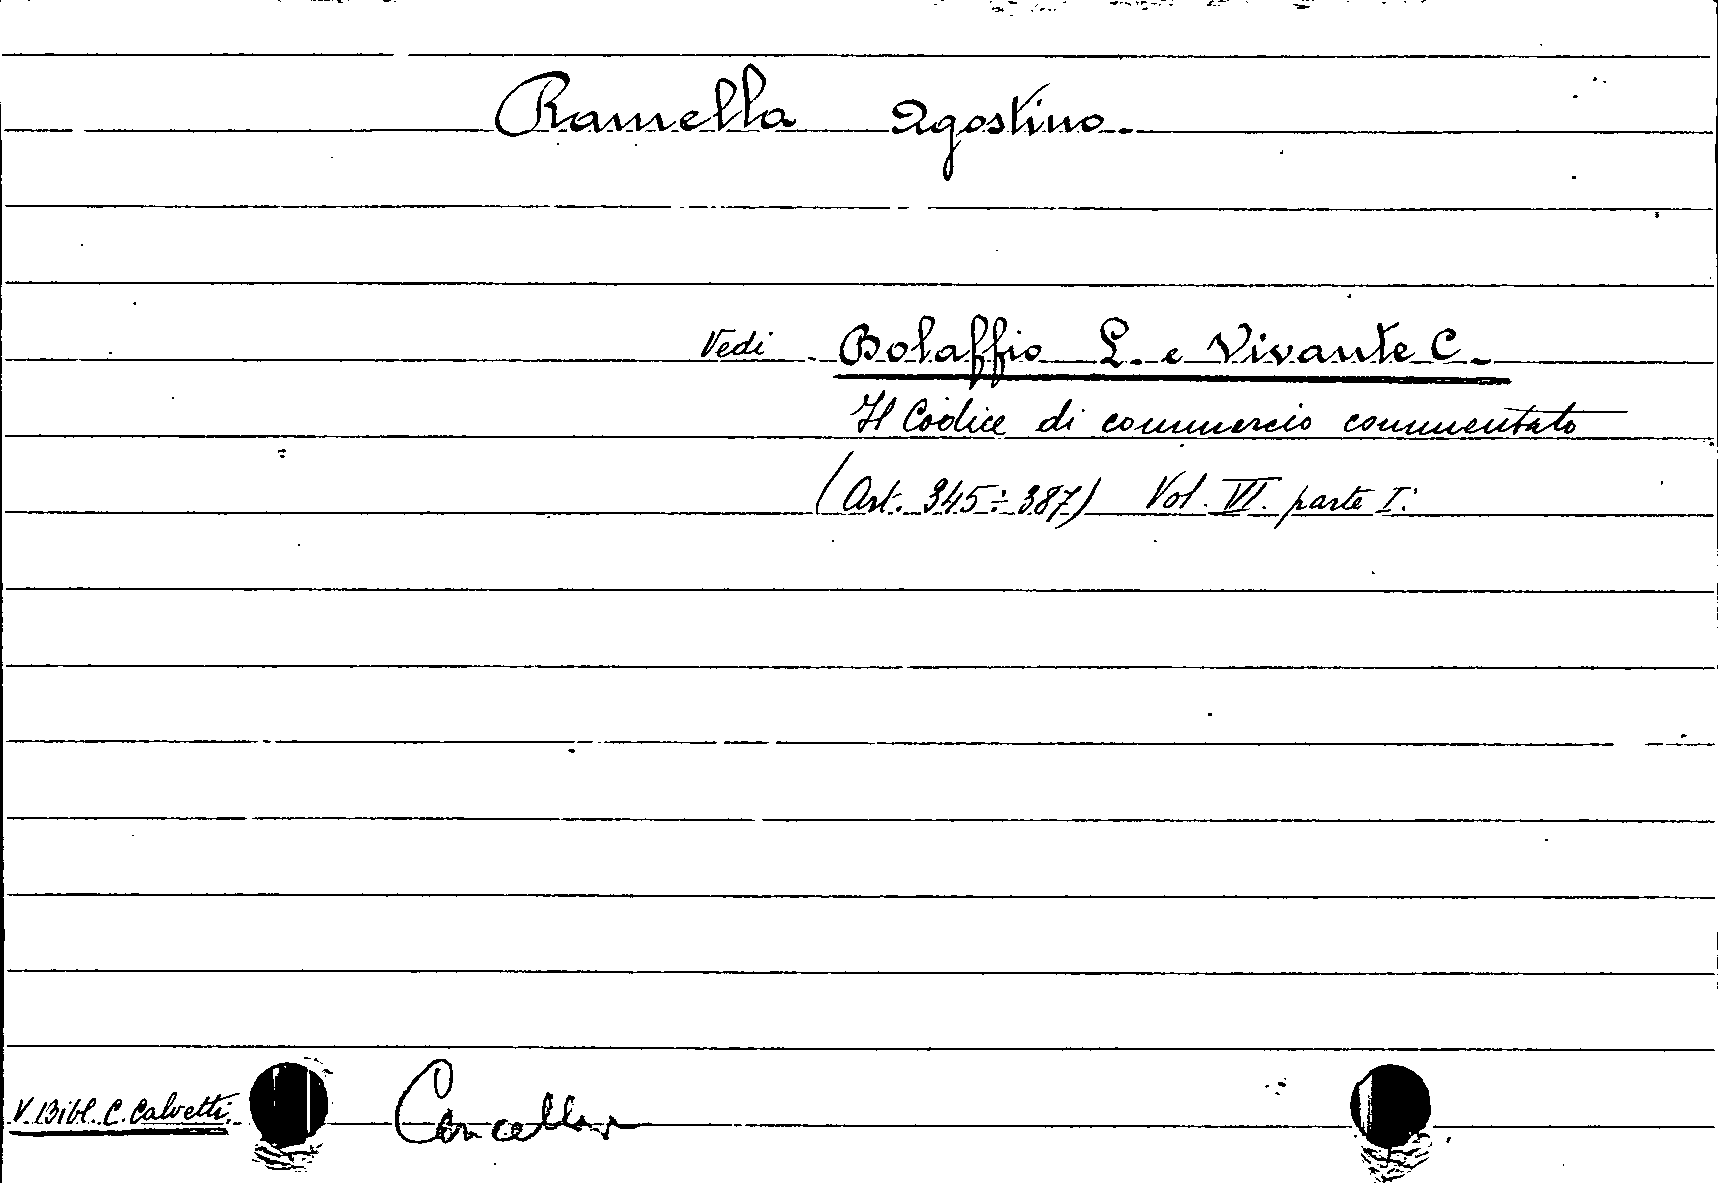 Ramella Agostino.
Vedi Bolaffio L. e Vivante C.
Il Codice di commercio commentato
(Art. 345÷387) Vol. VI. parte I.
V. Bibl. C. Calvetti.